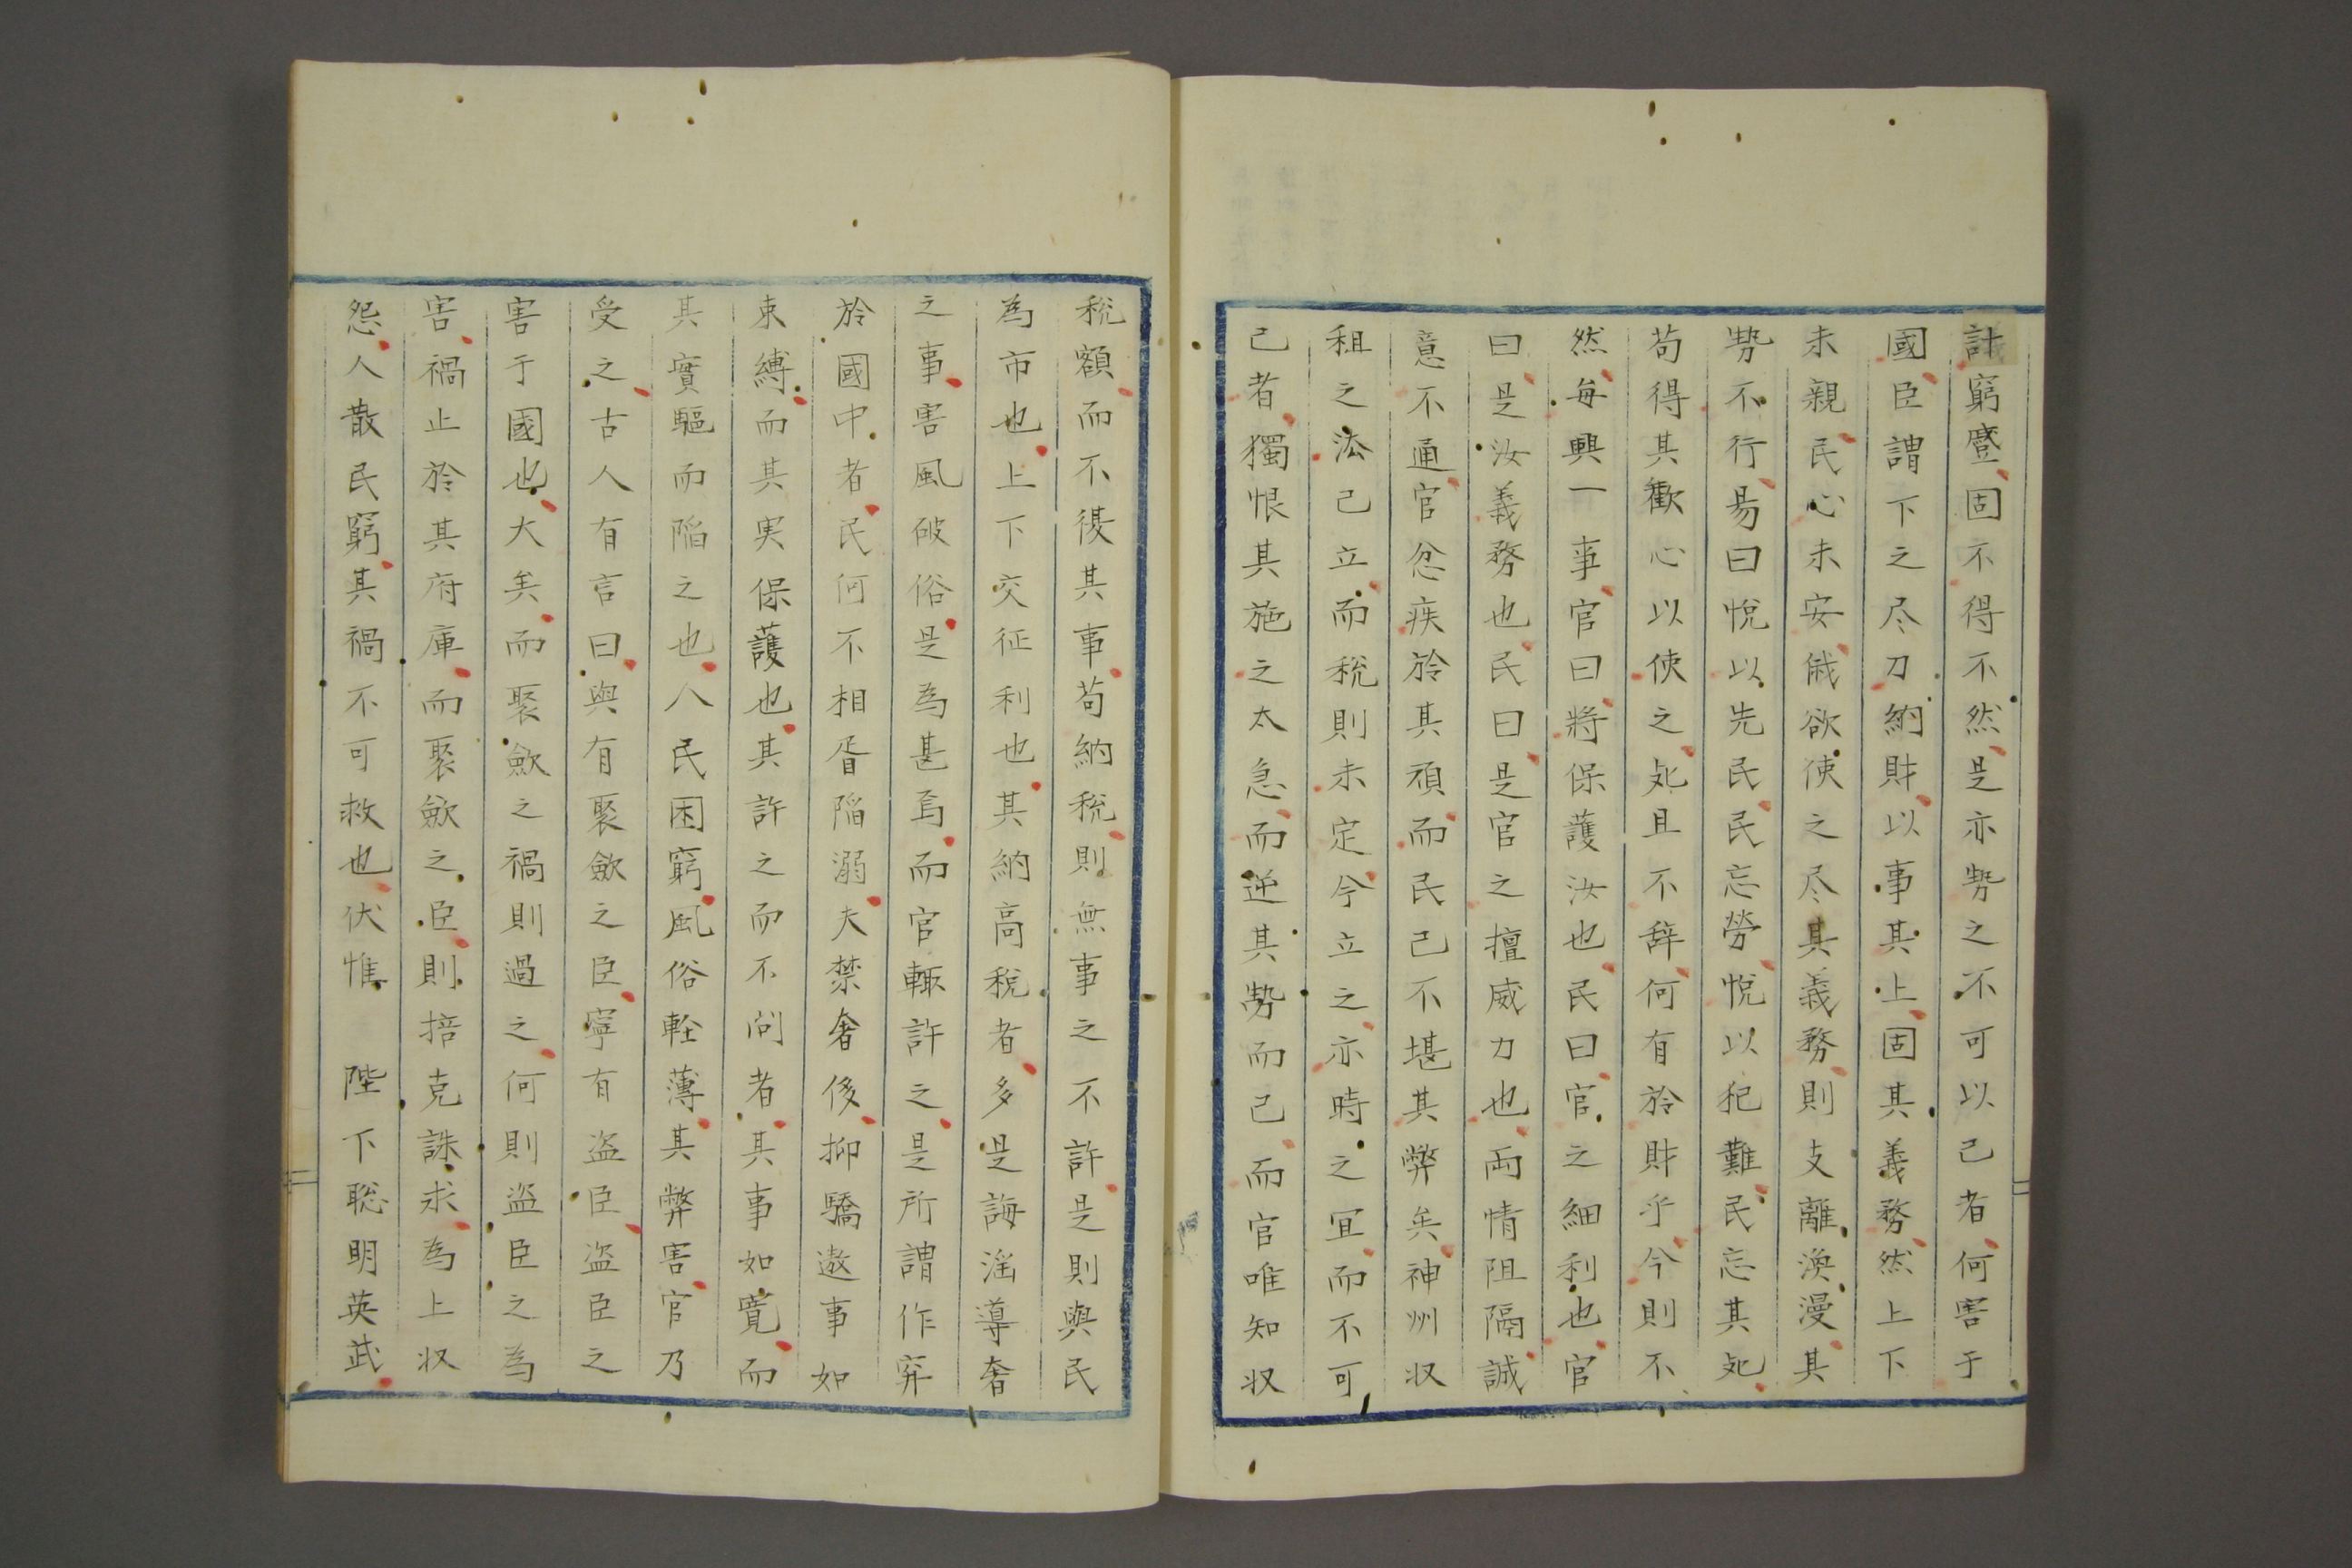 計窮蹙固不得不然是亦勢之不可以已者何害于
國臣謂下之尽力納財以事其上固其義務然上下
未親民心未安俄欲使之尽其義務則支離渙漫其
勢不行易曰悅以先民民忘勞悅以犯難民忘其死
苟得其歡心以使之死且不辞何有於財乎今則不
然每興一事官曰將保護汝也民曰官之細利也官
曰是汝義務也民曰是官之擅威力也両情阻隔誠
意不通官忿疾於其頑而民已不堪其弊矣神州収
租之法已立而税則未定今立之亦時之宜而不可
已者獨恨其施之太急而逆其勢而已而官唯知収
税額而不復其事苟納税則無事之不許是則與民
為市也上下交征利也其納高税者多是誨淫導奢
之事害風破俗是為甚焉而官輙許之是所謂作穽
於國中者民何不相胥陥溺夫禁奢侈抑驕遨事如
束縛而其実保護也其許之而不问者其事如寬而
其實驅而陥之也人民困窮風俗軽薄其弊害官乃
受之古人有言曰與有聚斂之臣寧有盗臣盗臣之
害于國也大矣而聚斂之禍則過之何則盗臣之為
害禍止於其府庫而聚斂之臣則掊克誅求為上収
怨人散民窮其禍不可救也伏惟　陛下聡明英武